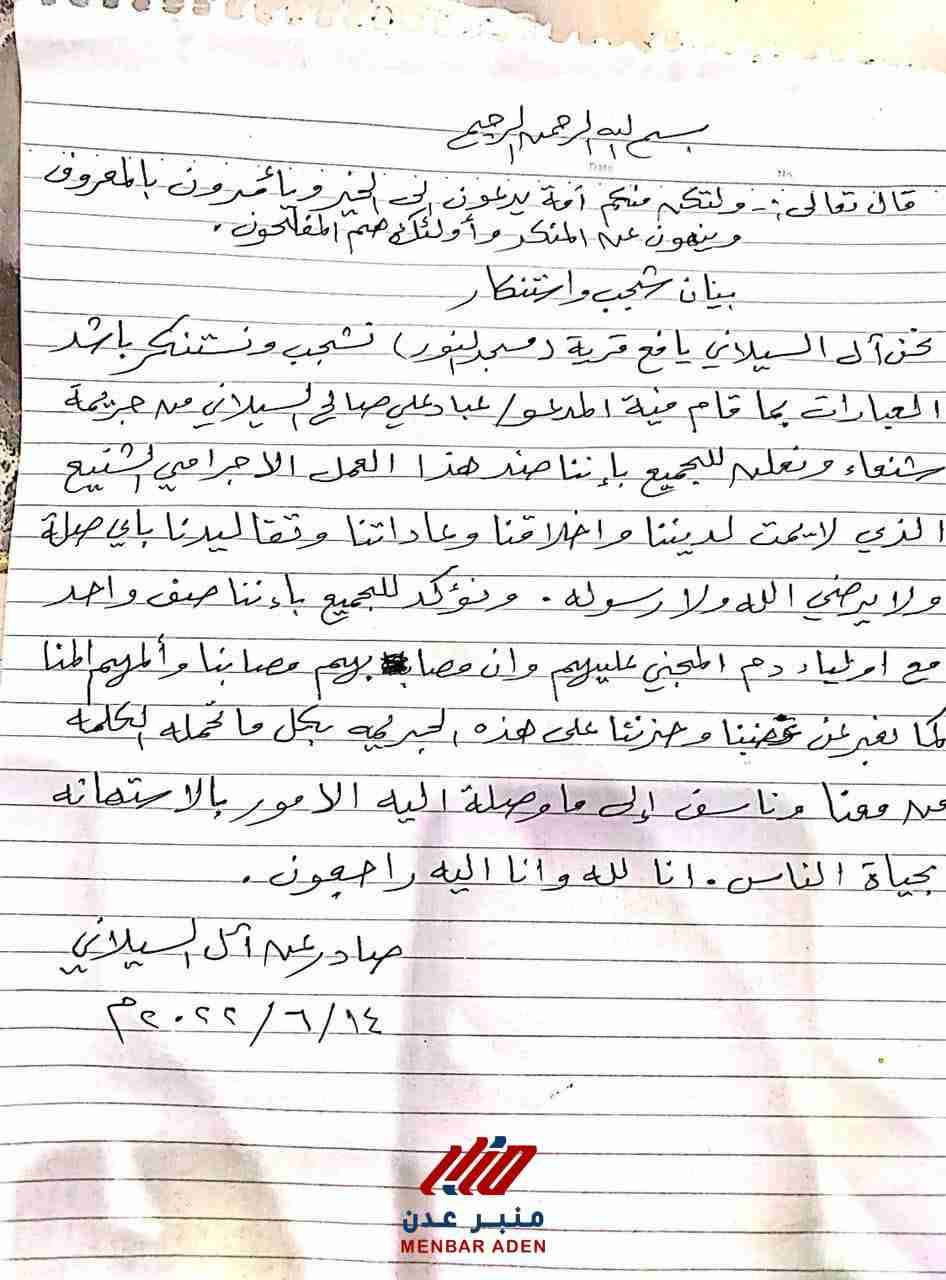 بسم الله الرحمن الرحيم
قال تعالى :- ولتكن منكم أمة يدعون إلى الخير ويأمرون بالمعروف
وينهون عن المنكر وأولئك هم المفلحون .
بيان شجب واستنكار
نحن آل السيلاني يافع قرية (مسجد النور) نشجب ونستنكر باشد
العبارات بما قام فية المدعو/ عباد علي صالح السيلاني من جريمة
شنعاء ونعلن للجميع بإننا ضد هذا العمل الاجرامي الشنيع
الذي لايمت لديننا واخلاقنا وعاداتنا وتقاليدنا باي صلة
ولا يرضي الله ولا رسوله . ونؤكد للجميع باءننا صف واحد
مع اولياء دم المجني عليهم وان مصابهم مصابنا وألمهم المنا
كما نعبر عن غضبنا وحزننا على هذه الجريمه بكل ما تحمله الكلمه
من معنا وناسف إلى ما وصلة اليه الامور بالاستهانه
بحياة الناس . انا لله وانا اليه راجعون .
صادر عن آل السيلاني
١٤/٦/٢٠٢٢م
منبر
منبر عدن
MENBAR ADEN